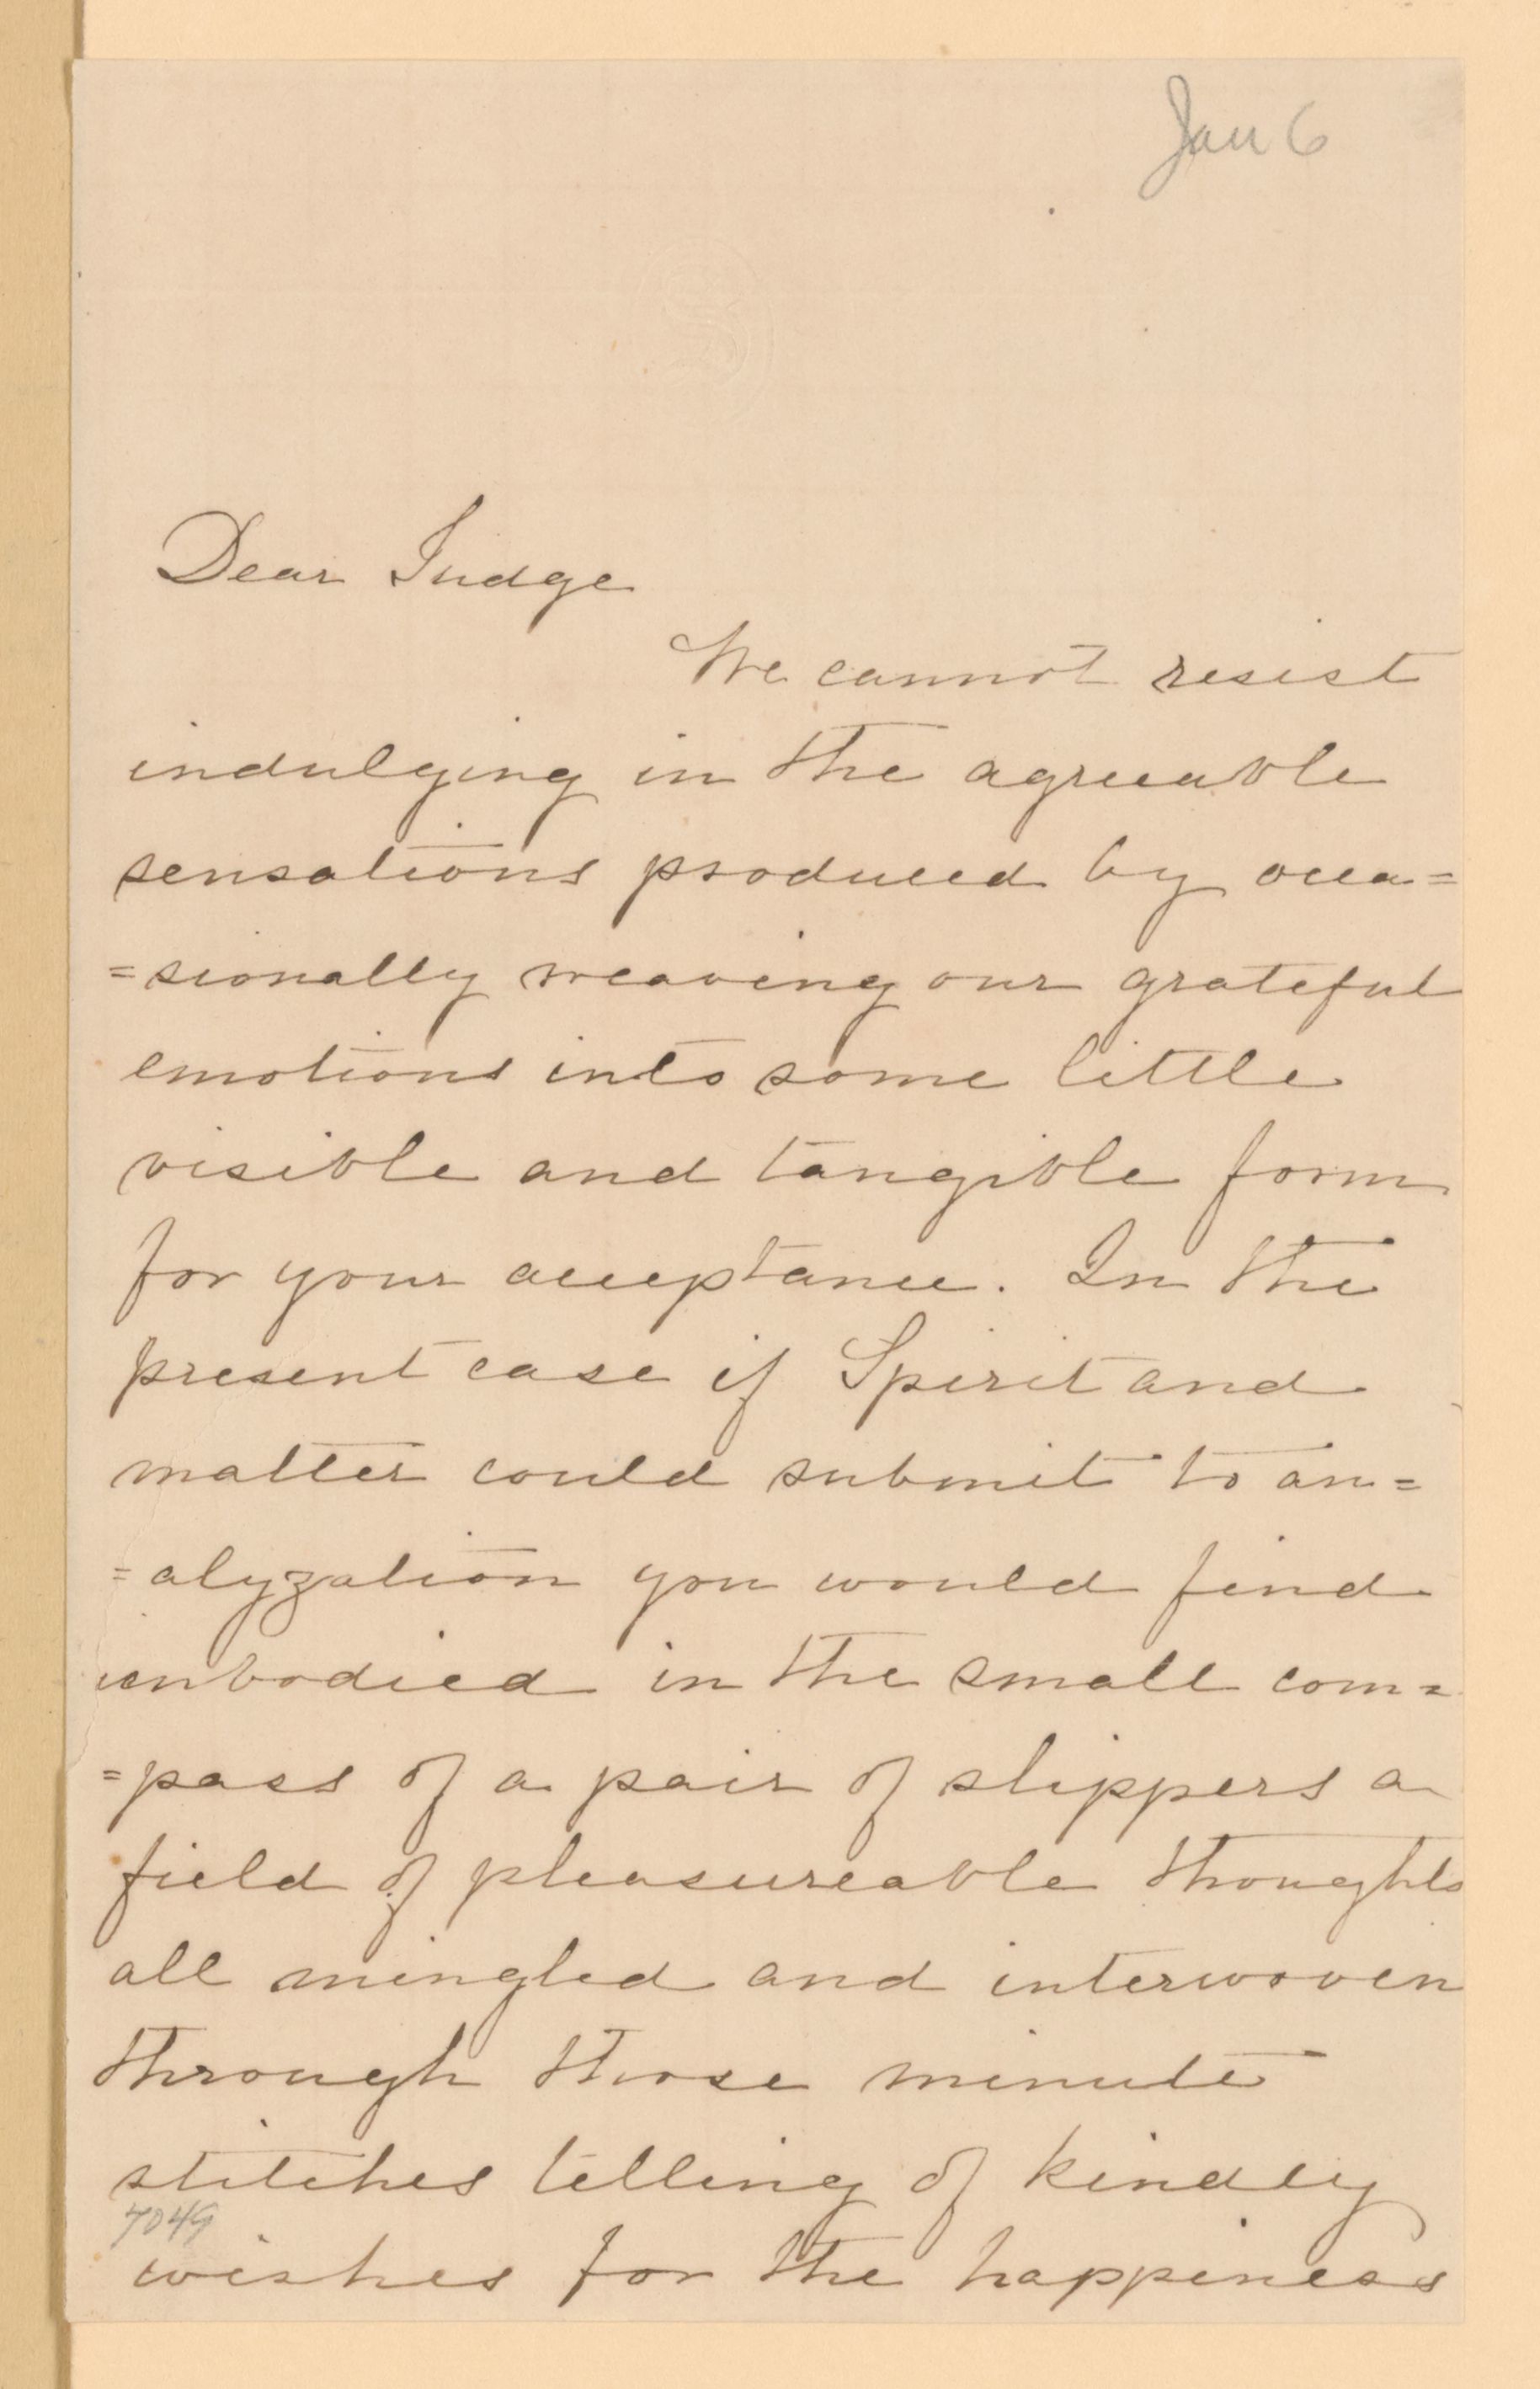 Jan 6
Dear Judge
We cannot resist
indulging in the agreeable
sensations produced by occa=
=sionally weaving our grateful
emotions into some little
visible and tangible form
for your acceptance. In the
present case if Spirit and
matter could submit to an=
=alyzation you would find
enbodied in the small com=
=pass of a pair of slippers a
field of pleasureable thoughts
all mingled and interwoven
through those minute
stitches telling of kindly
7049
wishes for the happiness